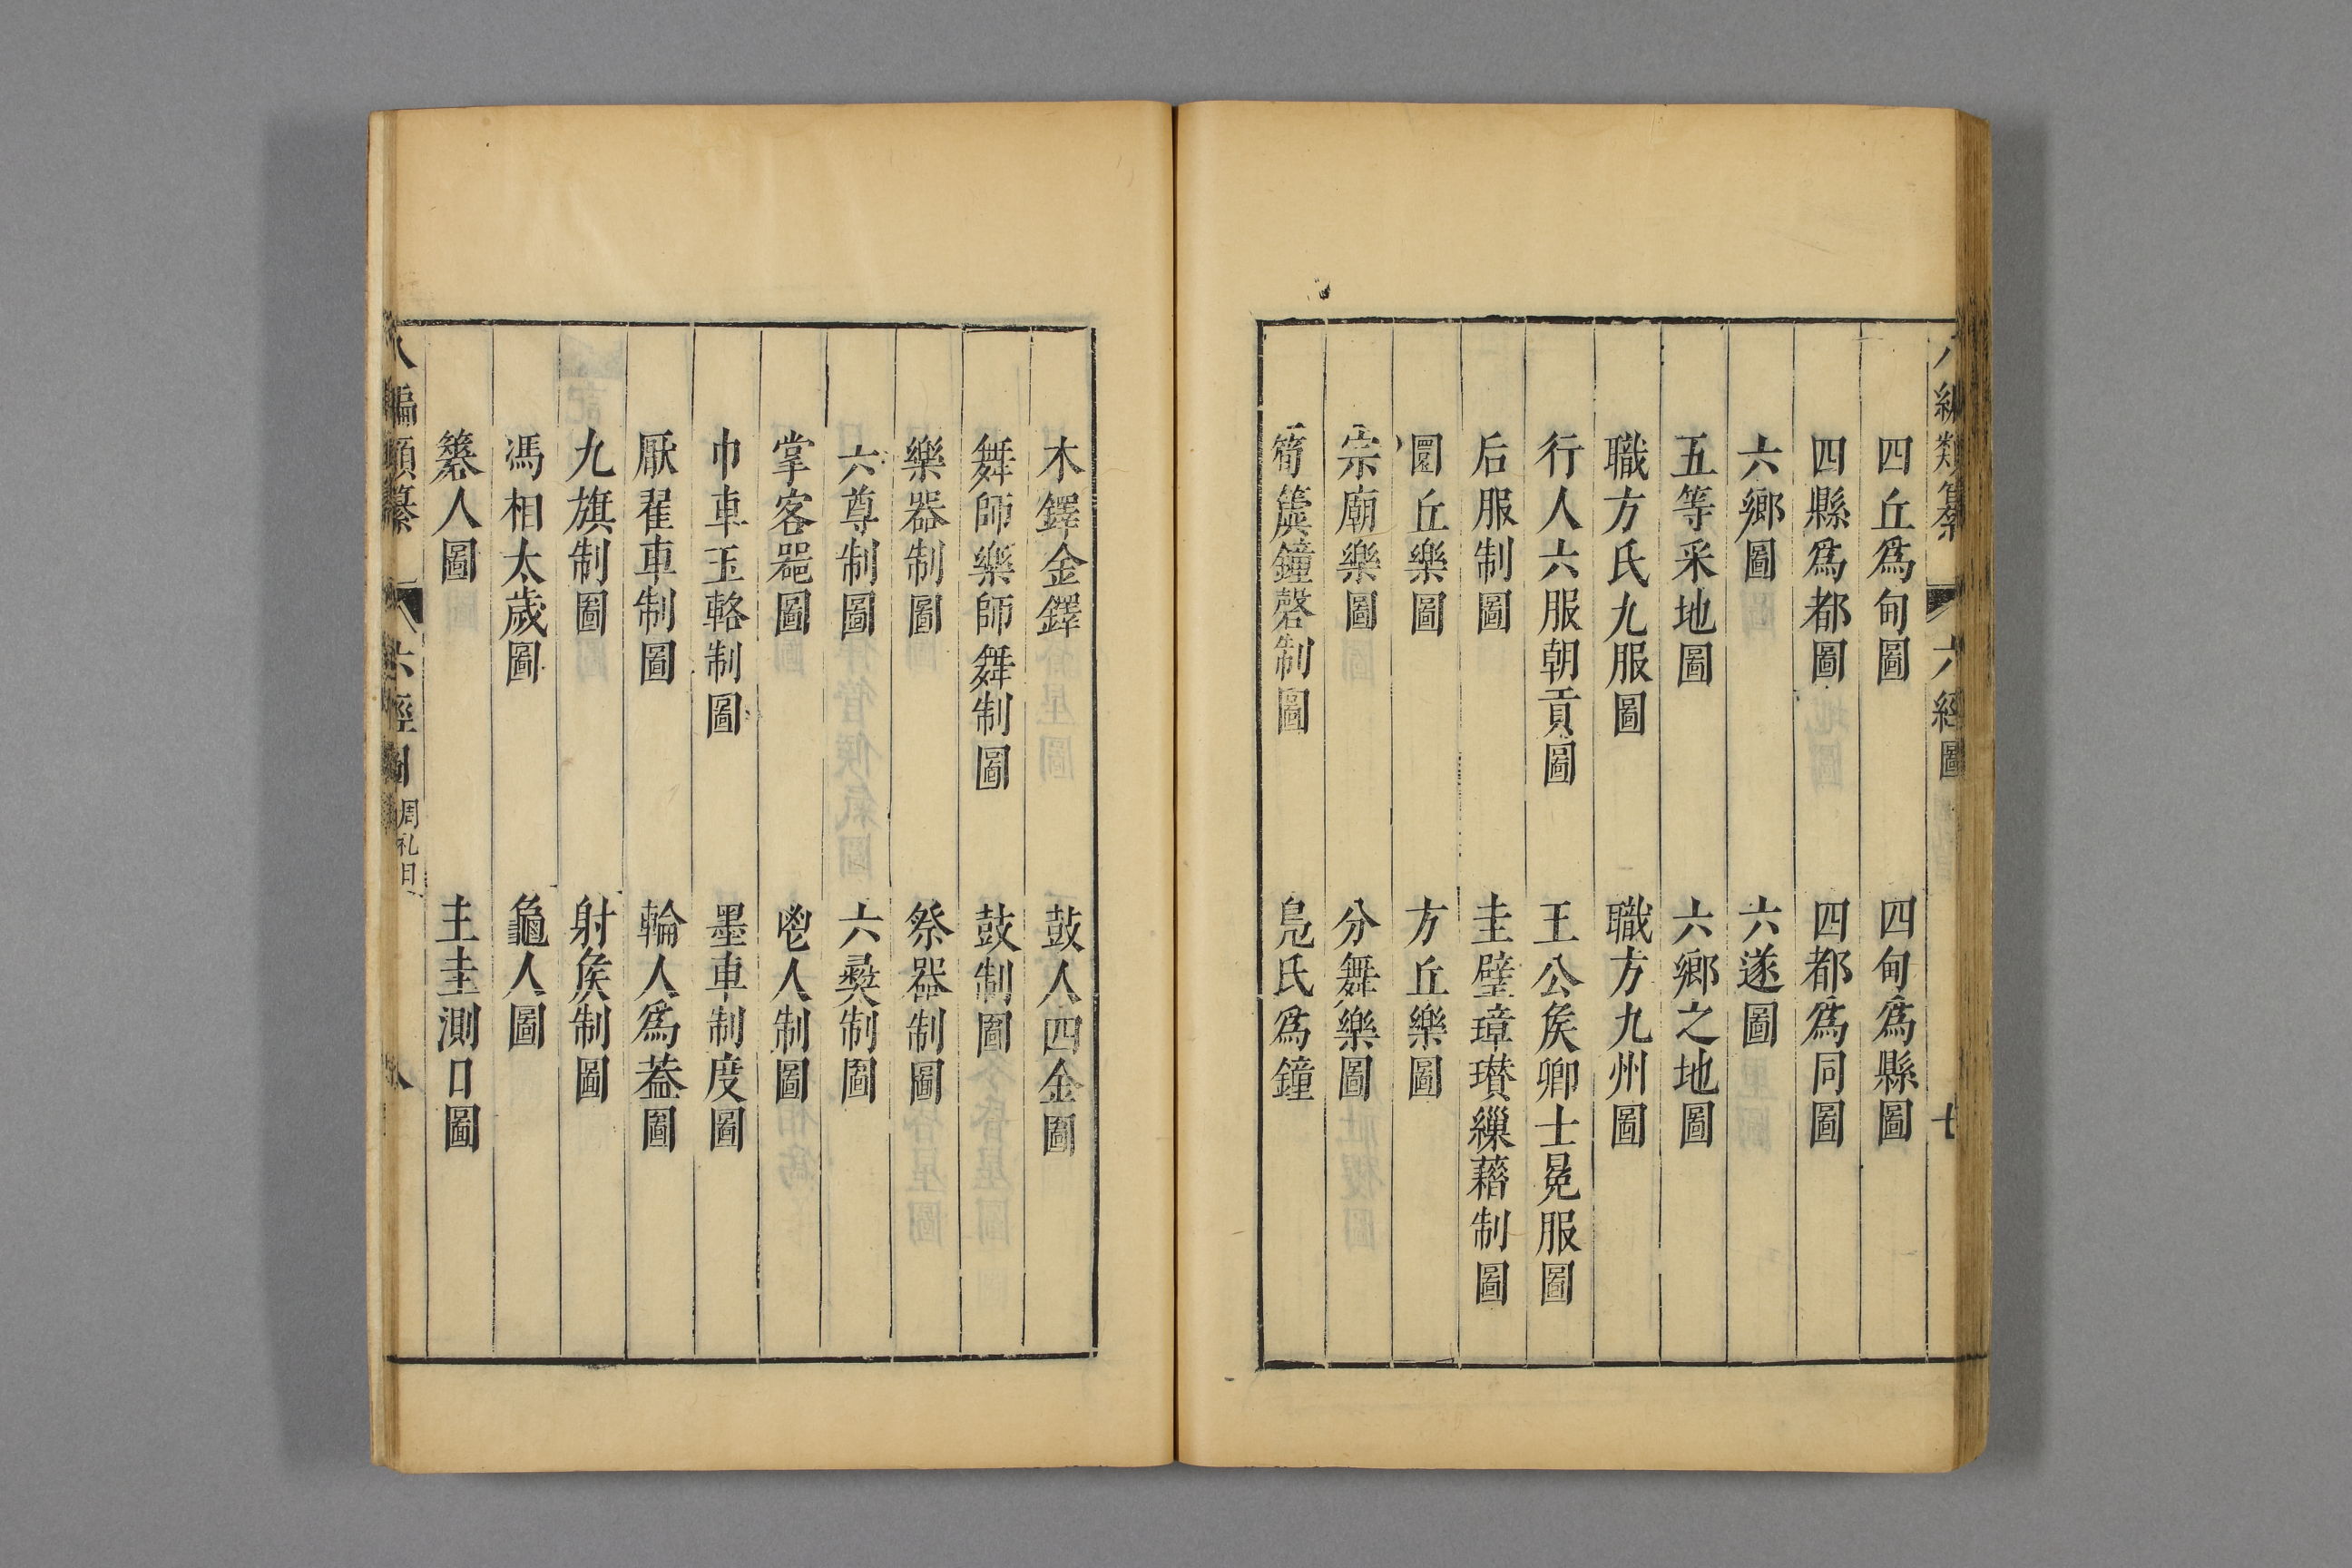 八編類纂 六經圖 七
四丘爲甸圖 四甸爲縣圖
四縣爲都圖 四都爲同圖
六鄉圖 六遂圖
五等采地圖 六鄉之地圖
職方氏九服圖 職方九州圖
行人六服朝貢圖 王公矦卿士冕服圖
后服制圖 圭璧璋瓚繅藉制圖
圜丘樂圖 方丘樂圖
宗廟樂圖 分舞樂圖
簨鐘磬制圖 鳧氏爲鐘
木鐸金鐸 鼓人四金圖
舞師樂師舞制圖 鼓制圖
樂器制圖 祭器制圖
六尊制圖 六彞制圖
掌客器圖 鬯人制圖
巾車玉輅制圖 墨車制度圖
厭翟車制圖 輪人爲葢圖
九旗制圖 射矦制圖
馮相太歲圖 龜人圖
簭人圖 土圭測日圖
八編類纂 六經圖 周礼目 八